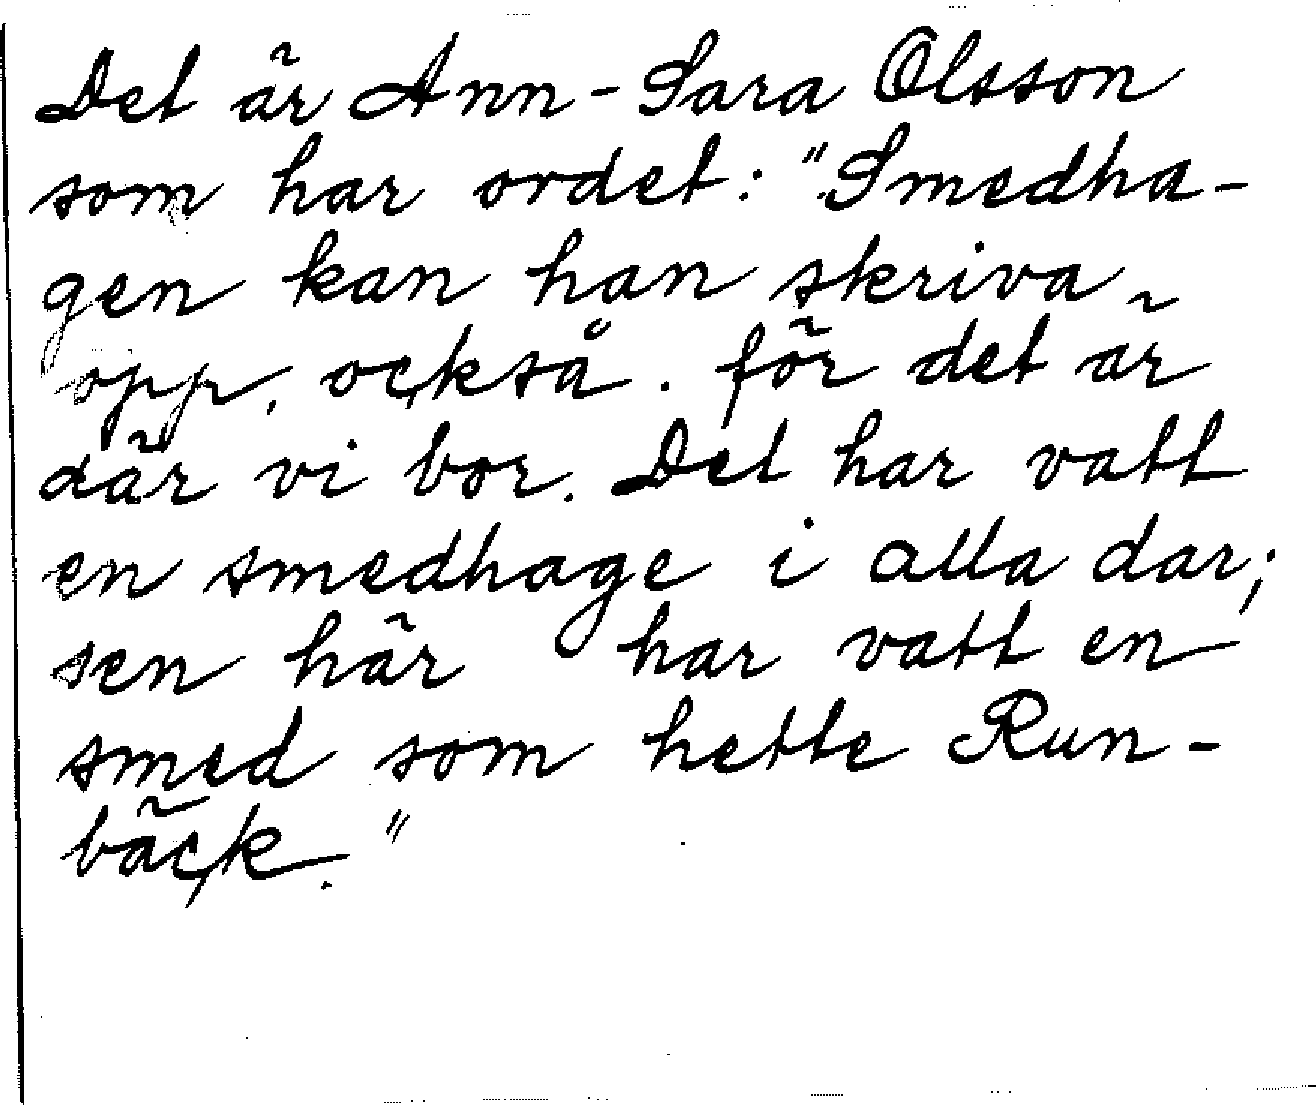 Det är Ann-Sara Olsson
som har ordet: "Smedha-
gen kan han skriva
opp, också. för det är
där vi bor. Det har vatt
en smedhage i alla dar;
sen här har vatt en
smed som hette Run-
bäck."